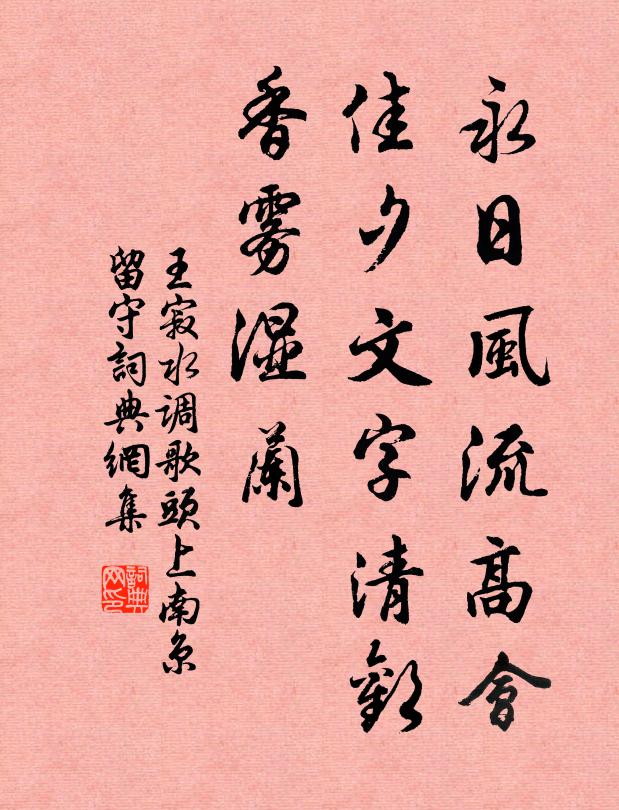 永日風流高會
佳夕文字清歡
香雾湿蘭
王寂水调歌頭上南京
留守詞典網集
詞典
网印